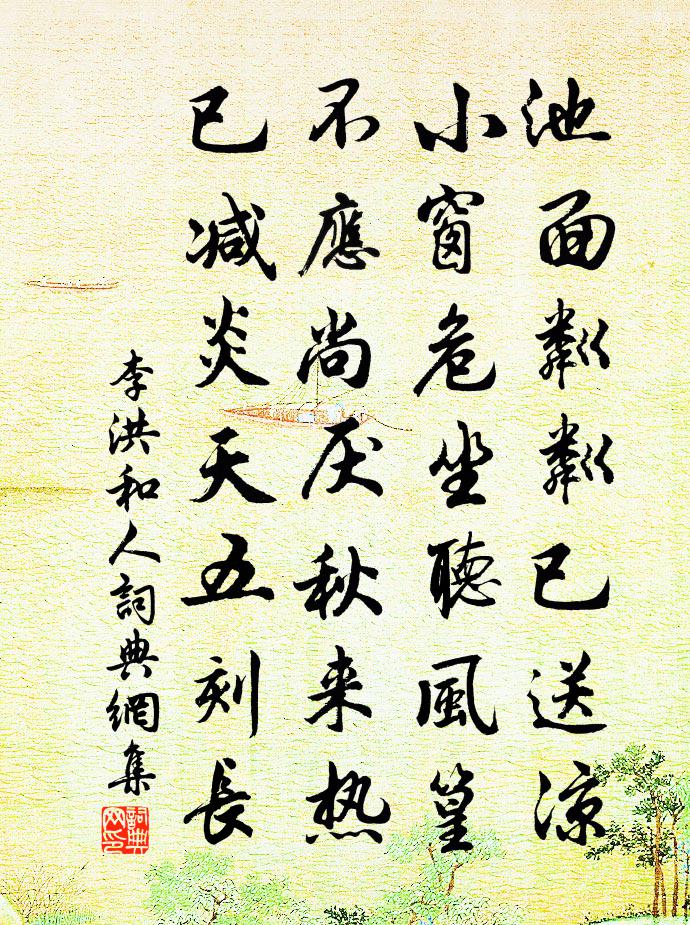 池面粼粼已送凉
小窗危坐聽風篁
不應尚厌秋来热
已减炎天五刻長
李洪和人詞典網集
詞典网印